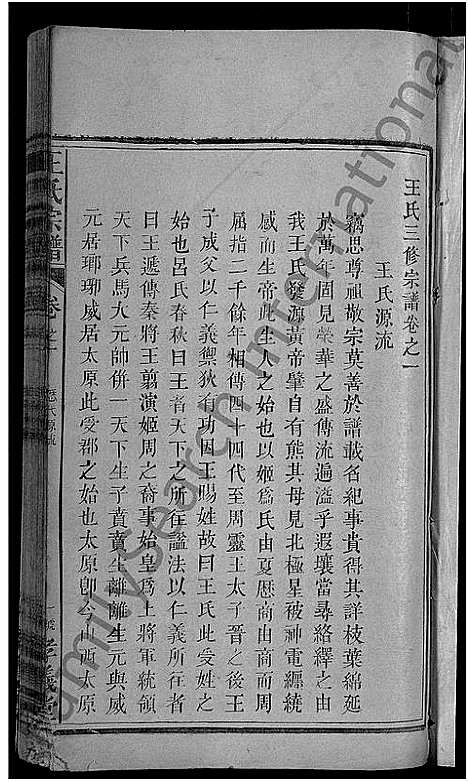 王氏三修宗譜卷之一
王氏源流
竊思尊祖敬宗莫善於譜載名紀事貴得其詳枝葉綿延
於萬年固見榮華之盛傳流遍溢乎遐壤當尋絡繹之由
我王氏發源黃帝肇自有熊其母見北極星被神電纏統
感而生帝此生人之始也以姬爲氏由夏歷商由商而周
屈指二千餘年相傳四十四代至周靈王太子晉之後王
子成父以仁義禦狄有功因王賜姓故曰王氏此受姓之
始也呂氏春秋曰王者天下之所往謚法以仁義所往者
曰王遞傳秦將王翦演姬周之裔事始皇爲上將軍統領
天下兵馬大元帥併一天下生子賁賁生離離生元與威
元居瑯琊威居太原此受郡之始也太原卽今山西太原
王氏宗譜
卷之一
FamilySearch International